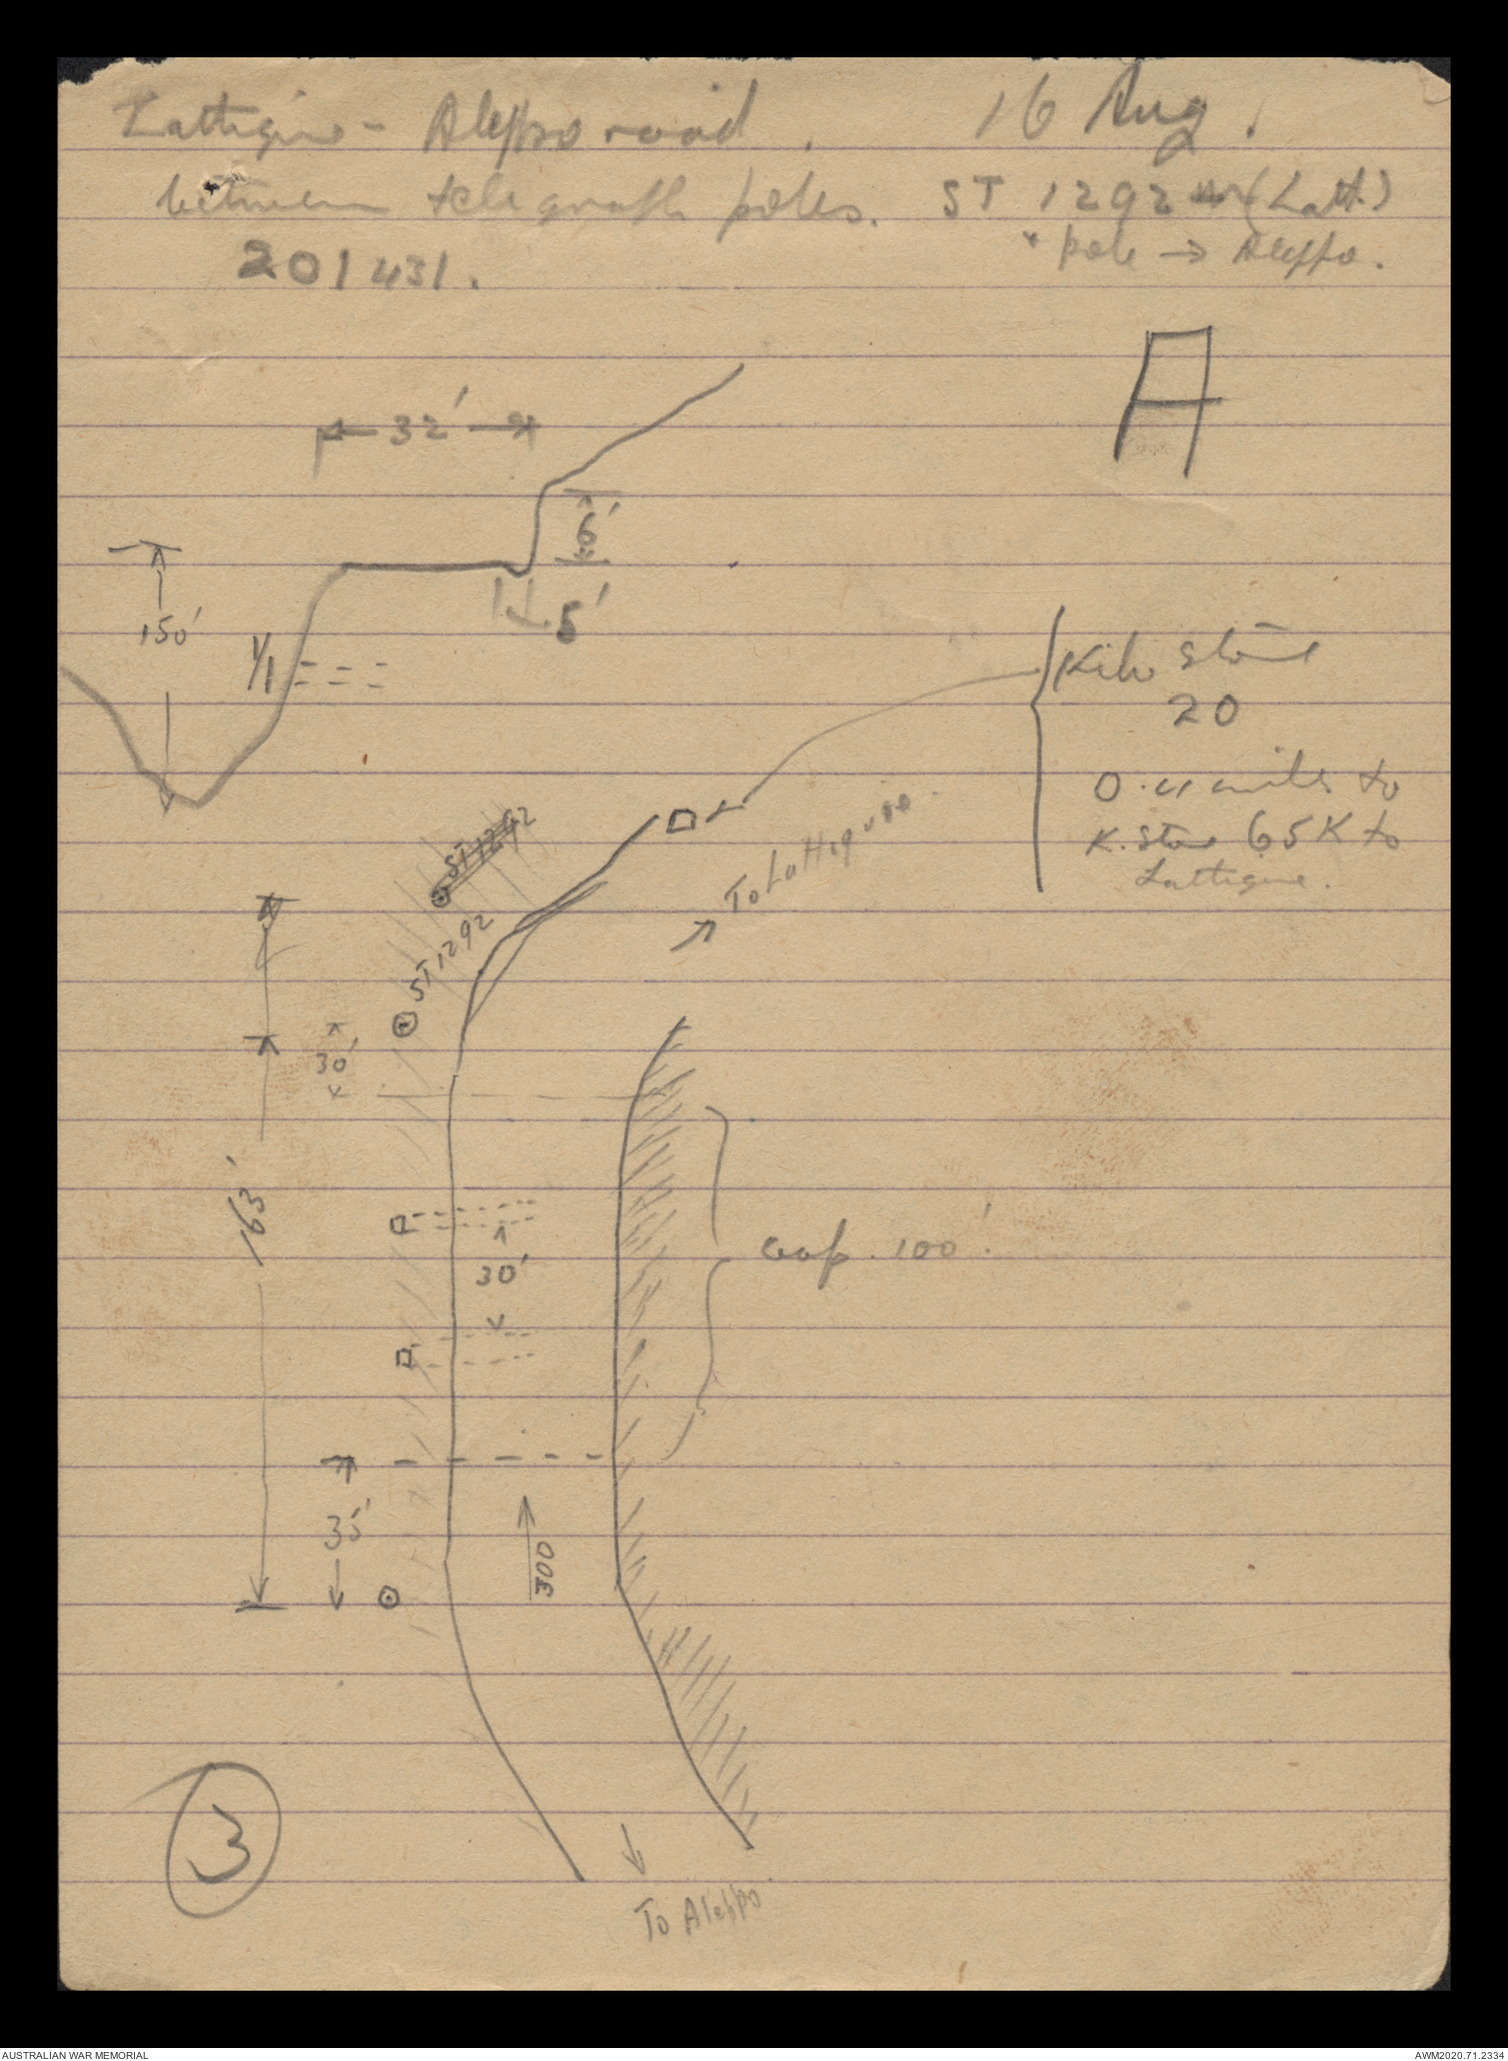 Lattique - Aleppo road. 16 Aug.
between telegraph poles. ST 1292 (Latt.)
* pole → Aleppo.
201431.
A
32'
6'
5'
150'
1/1
Kilo stone
20
0. miles to
K. Stone 65K to
Lattique.
ST 1292
To Lattique.
ST 1292
30'
163'
30'
Gap. 100'.
35'
300
3
To Aleppo.
AUSTRALIAN WAR MEMORIAL
AWM2020.71.2334